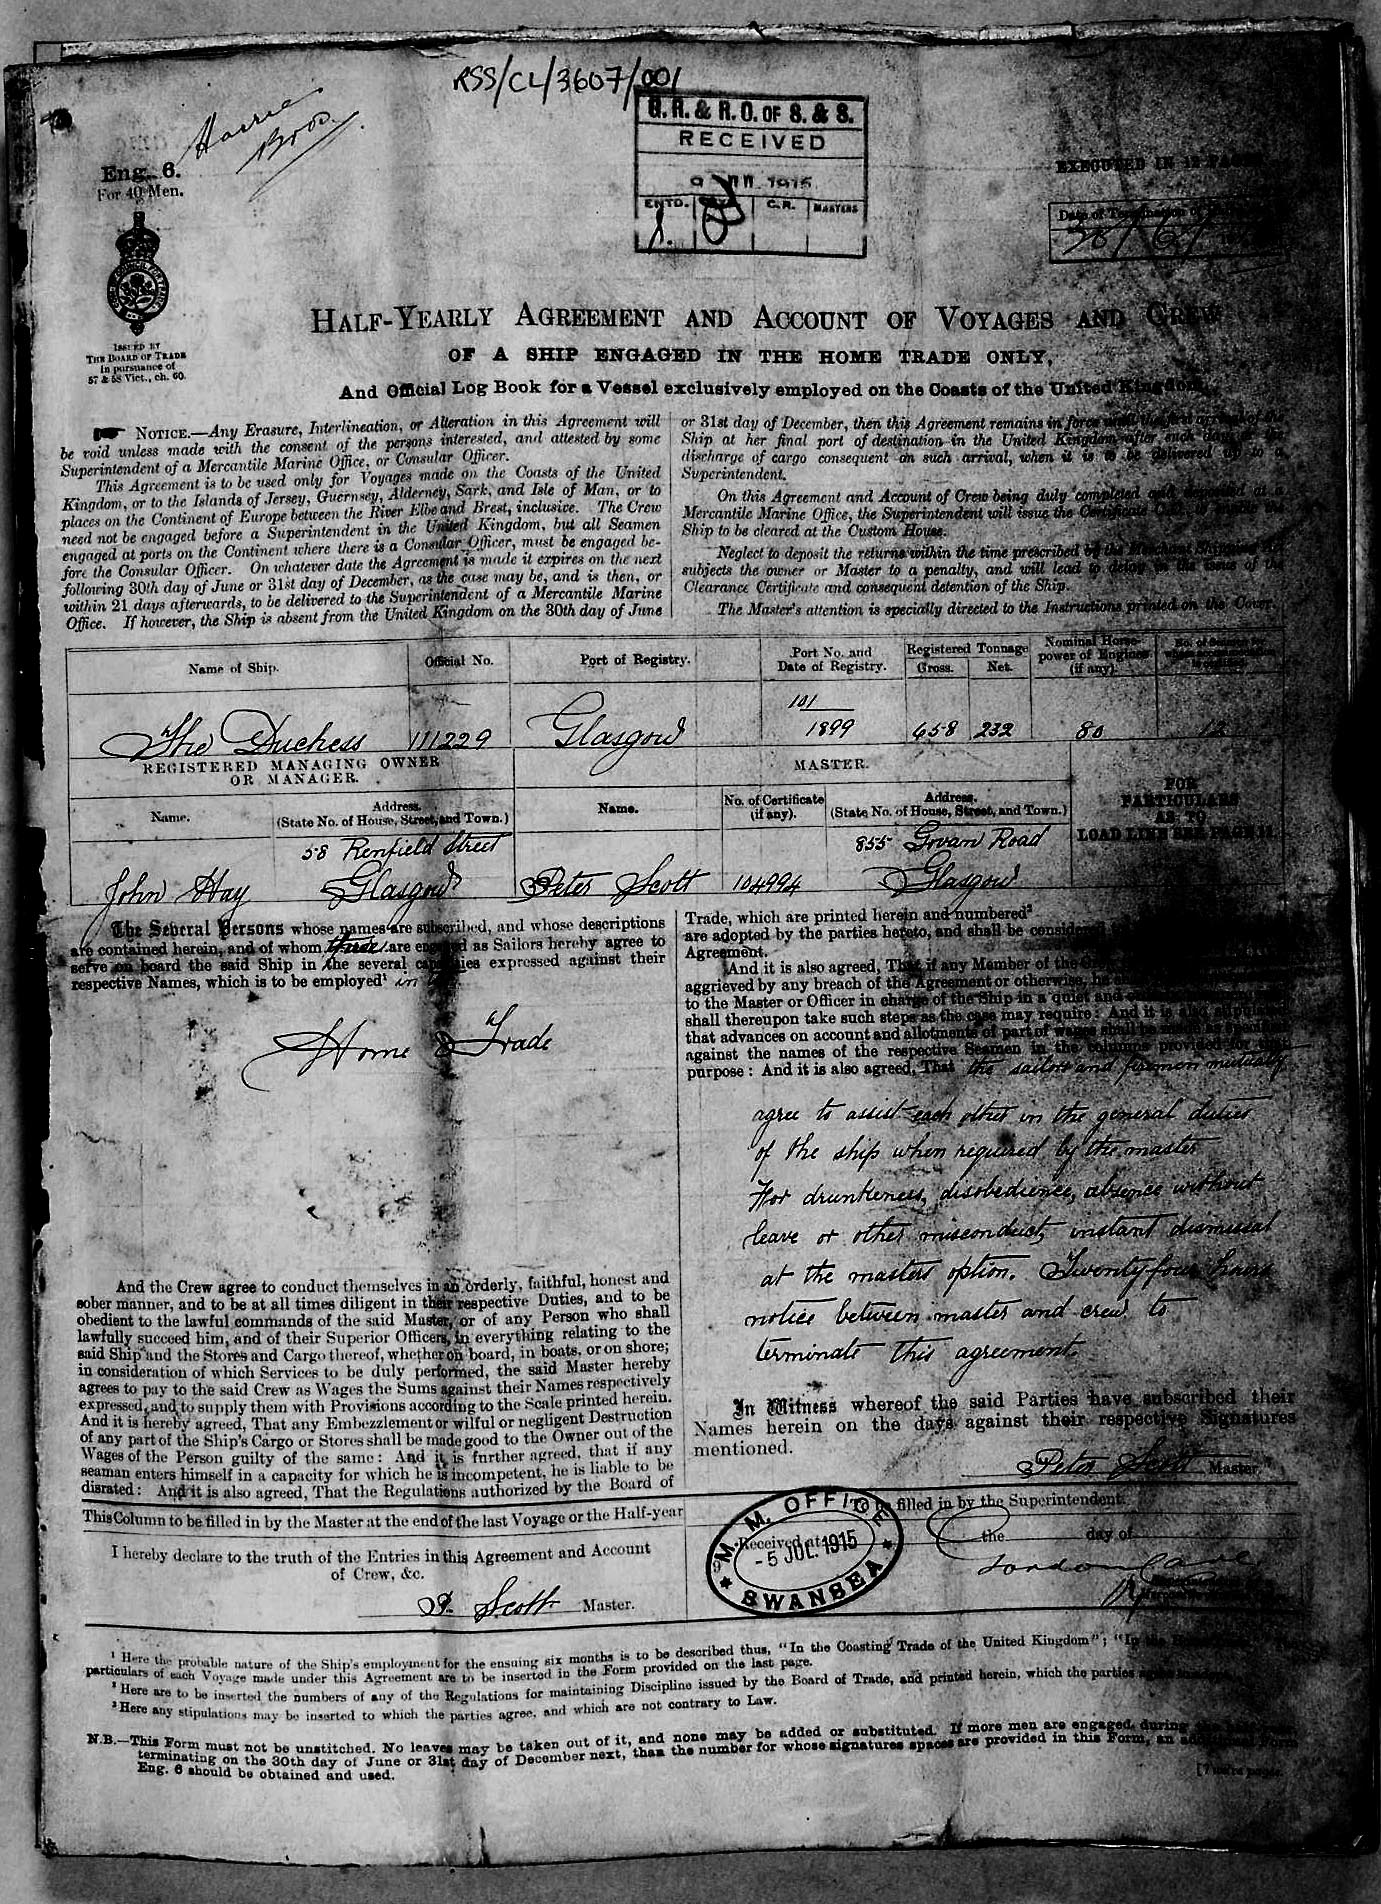 RSS/CL/3607/001
Bros.
G. R. & R. O. OF S. & S.
RECEIVED
1915
ENTD.
C.R.
MASTERS
Eng. 6.
For 40 Men.
EXECUTED IN 12 PAGES
Date of Termination of
30/6/
ISSUED BY
THE BOARD OF TRADE
In pursuance of
57 & 58 Vict., ch. 60.
HALF-YEARLY AGREEMENT AND ACCOUNT OF VOYAGES AND CREW
OF A SHIP ENGAGED IN THE HOME TRADE ONLY,
And Official Log Book for a Vessel exclusively employed on the Coasts of the United Kingdom.
NOTICE.—Any Erasure, Interlineation, or Alteration in this Agreement will
be void unless made with the consent of the persons interested, and attested by some
Superintendent of a Mercantile Marine Office, or Consular Officer.
This Agreement is to be used only for Voyages made on the Coasts of the United
Kingdom, or to the Islands of Jersey, Guernsey, Alderney, Sark, and Isle of Man, or to
places on the Continent of Europe between the River Elbe and Brest, inclusive. The Crew
need not be engaged before a Superintendent in the United Kingdom, but all Seamen
engaged at ports on the Continent where there is a Consular Officer, must be engaged be-
fore the Consular Officer. On whatever date the Agreement is made it expires on the next
following 30th day of June or 31st day of December, as the case may be, and is then, or
within 21 days afterwards, to be delivered to the Superintendent of a Mercantile Marine
Office. If however, the Ship is absent from the United Kingdom on the 30th day of June
or 31st day of December, then this Agreement remains in force until the first arrival of the
Ship at her final port of destination in the United Kingdom after such day or the
discharge of cargo consequent on such arrival, when it is to be delivered up to a
Superintendent.
On this Agreement and Account of Crew being duly completed and deposited at a
Mercantile Marine Office, the Superintendent will issue the Certificate to enable the
Ship to be cleared at the Custom House.
Neglect to deposit the returns within the time prescribed by the Merchant Shipping Act
subjects the owner or Master to a penalty, and will lead to delay in the issue of the
Clearance Certificate and consequent detention of the Ship.
The Master's attention is specially directed to the Instructions printed on the Cover.
Name of Ship.
Official No.
Port of Registry.
Port No. and
Date of Registry.
Registered Tonnage
Gross.
Net.
Nominal Horse-
power of Engines
(if any).
No. of Seamen for
The Duchess
111229
Glasgow
101
1899
658
232
80
12
REGISTERED MANAGING OWNER
OR MANAGER.
MASTER.
FOR
PARTICULARS
AS TO
LOAD LINE SEE PAGE 11.
Name.
Address.
(State No. of House, Street, and Town.)
Name.
No. of Certificate
(if any).
Address.
(State No. of House, Street, and Town.)
John Hay
58 Renfield Street
Glasgow
Peter Scott
104994
855 Govan Road
Glasgow
The Several Persons whose names are subscribed, and whose descriptions
are contained herein, and of whom three are engaged as Sailors hereby agree to
serve on board the said Ship in the several capacities expressed against their
respective Names, which is to be employed¹ in
Home Trade
And the Crew agree to conduct themselves in an orderly, faithful, honest and
sober manner, and to be at all times diligent in their respective Duties, and to be
obedient to the lawful commands of the said Master, or of any Person who shall
lawfully succeed him, and of their Superior Officers, in everything relating to the
said Ship and the Stores and Cargo thereof, whether on board, in boats, or on shore;
in consideration of which Services to be duly performed, the said Master hereby
agrees to pay to the said Crew as Wages the Sums against their Names respectively
expressed, and to supply them with Provisions according to the Scale printed herein.
And it is hereby agreed, That any Embezzlement or wilful or negligent Destruction
of any part of the Ship's Cargo or Stores shall be made good to the Owner out of the
Wages of the Person guilty of the same: And it is further agreed, that if any
seaman enters himself in a capacity for which he is incompetent, he is liable to be
disrated: And it is also agreed, That the Regulations authorized by the Board of
Trade, which are printed herein and numbered²
are adopted by the parties hereto, and shall be considered
Agreement.
And it is also agreed, That if any Member of the Crew
aggrieved by any breach of the Agreement or otherwise, he
to the Master or Officer in charge of the Ship in a quiet and
shall thereupon take such steps as the case may require: And it is also stipulated
that advances on account and allotments of part of wages shall be made as specified
against the names of the respective Seamen in the columns provided for that
purpose: And it is also agreed, That the sailors and firemen mutually
agree to assist each other in the general duties
of the ship when required by the master
For drunkeness, disobedience, absence without
leave or other misconduct, instant dismissal
at the masters option. Twenty four hours
notice between master and crew to
terminate this agreement.
In Witness whereof the said Parties have subscribed their
Names herein on the days against their respective Signatures
mentioned.
Peter Scott Master.
This Column to be filled in by the Master at the end of the last Voyage or the Half-year
I hereby declare to the truth of the Entries in this Agreement and Account
of Crew, &c.
P. Scott Master.
To be filled in by the Superintendent.
Received at
the day of
M. M. OFFICE
- 5 JUL. 1915
SWANSEA
¹ Here the probable nature of the Ship's employment for the ensuing six months is to be described thus, "In the Coasting Trade of the United Kingdom"; "In the
particulars of each Voyage made under this Agreement are to be inserted in the Form provided on the last page.
² Here are to be inserted the numbers of any of the Regulations for maintaining Discipline issued by the Board of Trade, and printed herein, which the parties
³ Here any stipulations may be inserted to which the parties agree, and which are not contrary to Law.
N.B.—This Form must not be unstitched. No leaves may be taken out of it, and none may be added or substituted. If more men are engaged during
terminating on the 30th day of June or 31st day of December next, than the number for whose signatures spaces are provided in this Form, an additional Form
Eng. 6 should be obtained and used.
[Twelve pages.